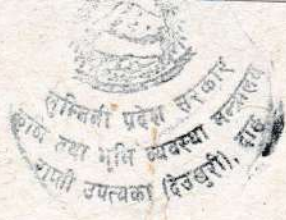 लुम्बिनी प्रदेश सरकार
तथा भूमि व्यवस्था मन्त्रालय
राप्ती उपत्यका (देउखुरी), दाङ